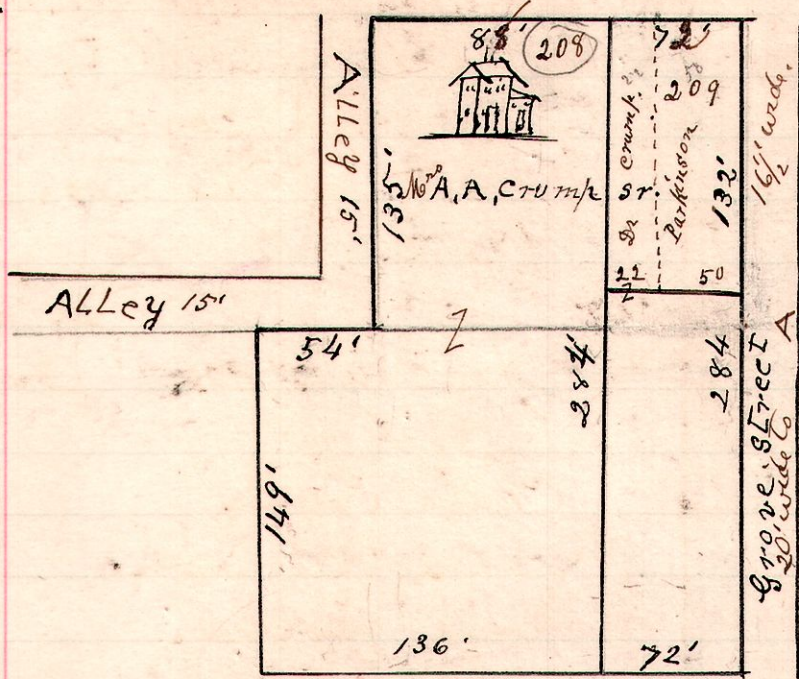 88'
208
72'
209
Alley 15'
135'
Mrs A, A, Crump
Dr Crump
sr.
Parkinson
132'
16 1/2' wide.
22
50
ALLey 15'
54'
284'
284
149'
Grove street
20' wide to A
136'
72'